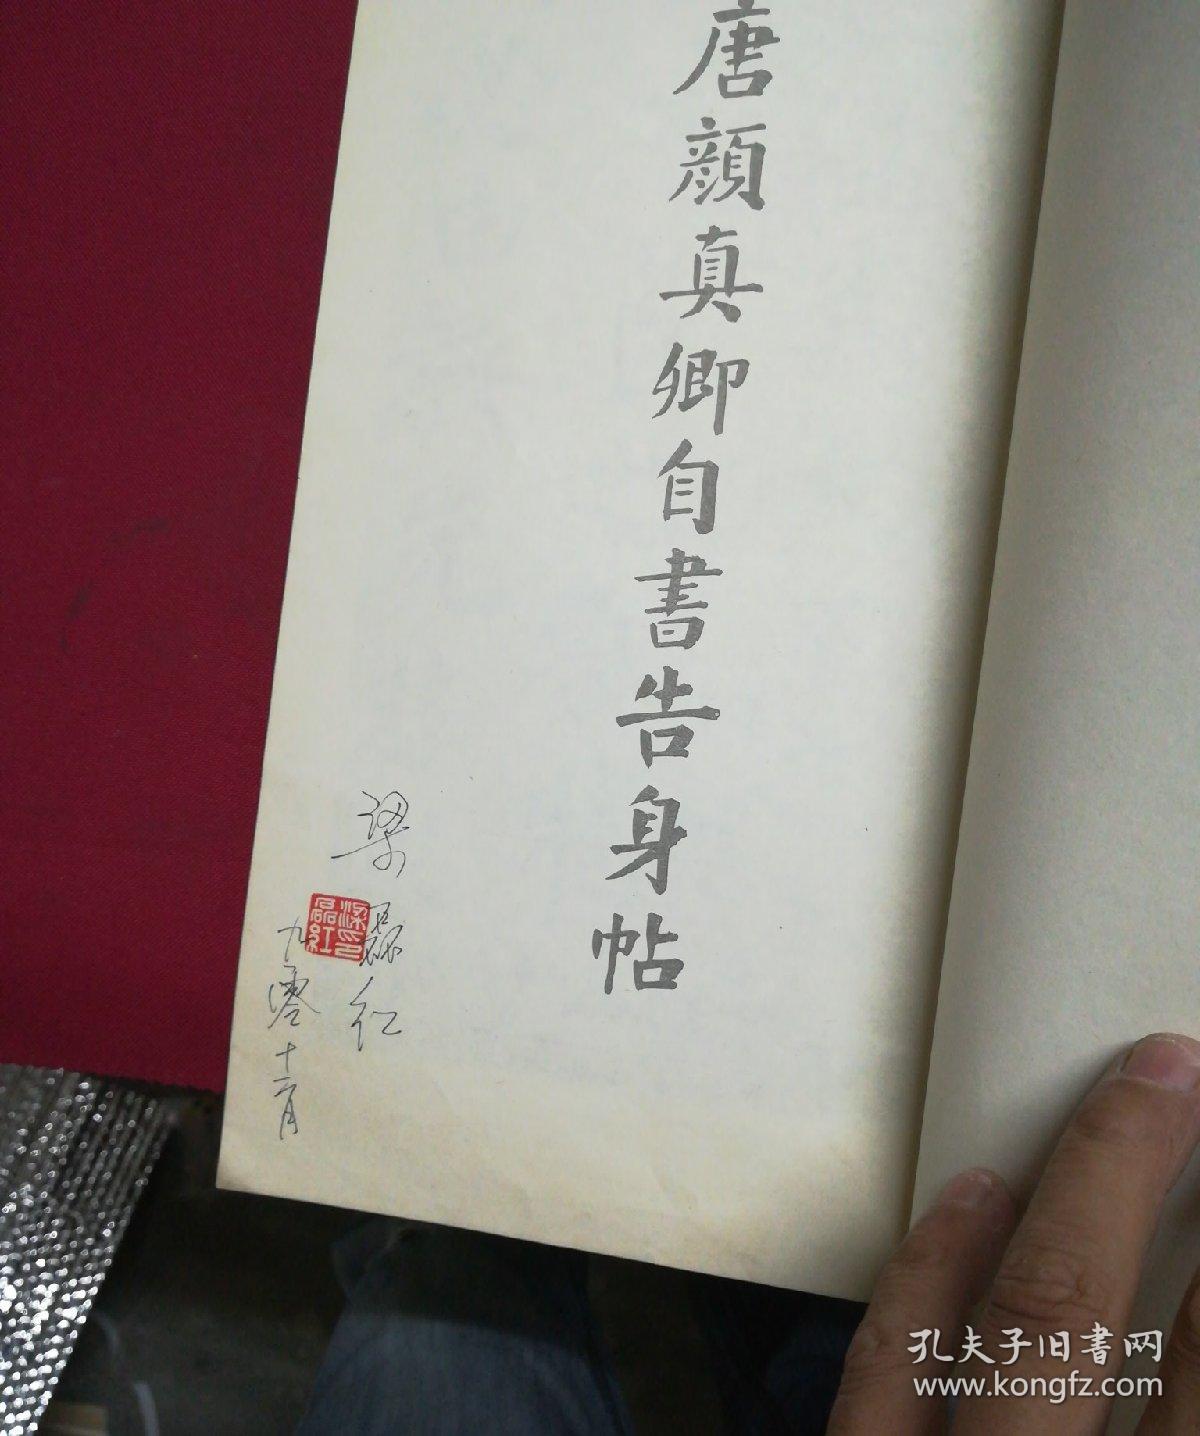 唐顏真卿自書告身帖
梁磊红
九零十二月
梁印
磊红
孔夫子旧書网
www.kongfz.com